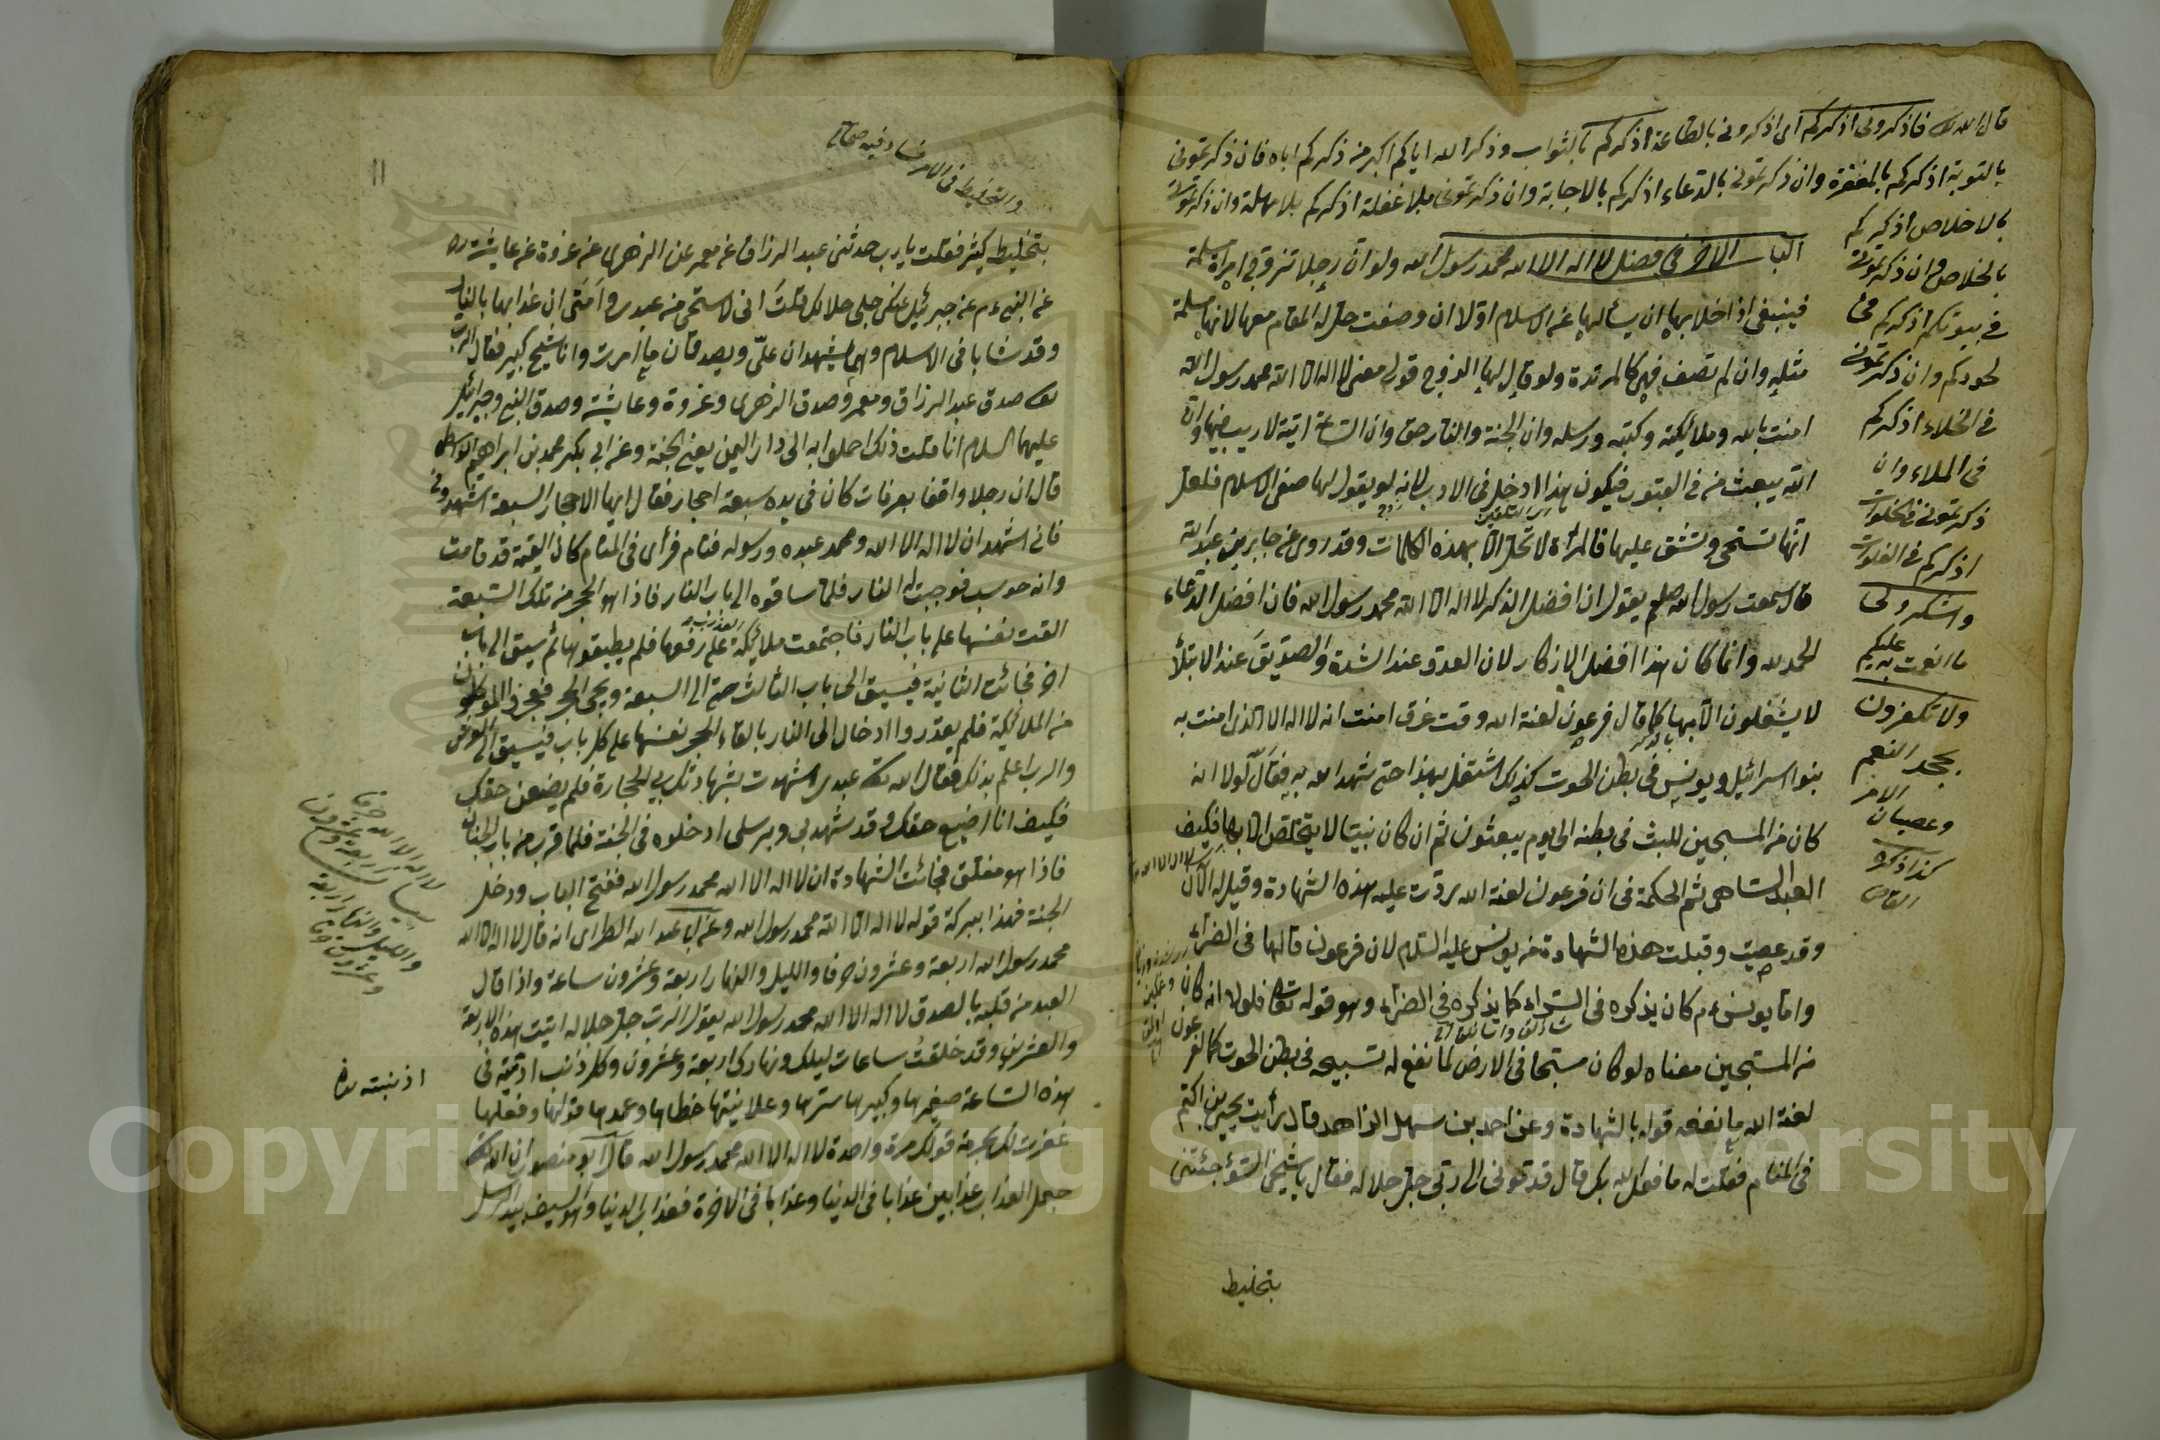 قال الله تعالى فاذكروني اذكركم اى اذكروني بالطاعة اذكركم بالثواب وذكر الله اياكم اكبر من ذكركم اياه فان ذكرتموني
بالتوبة اذكركم بالمغفرة وان ذكرتموني بالدعاء اذكركم بالاجابة وان ذكرتموني بلا غفلة اذكركم بلا مهلة وان ذكرتموني
بالاخلاص اذكركم
بالخلاص وان ذكرتموني
في بيوتكم اذكركم في
لحودكم وان ذكرتموني
في الخلاء اذكركم
في الملاء وان
ذكرتموني في الخلوات
اذكركم في الفلوات
واشكروا لى
ما انعمت به عليكم
ولا تكفرون
بجحد النعم
وعصيان الامر
كذا ذكره
القاضى
الباب الاخر في فضل لا اله الا الله محمد رسول الله ولو ان رجلا تزوج امرأة مسلمة
فينبغى اذا خلا بها ان يسألها عن الاسلام اولا ان وصفت حل له المقام معها لانها مسلمة
مثله وان لم تصف فهى كالمرتدة ولو قال لها الزوج قولى معنى لا اله الا الله محمد رسول الله
امنت بالله وملائكته وكتبه ورسله وان الجنة والنار حق وان الساعة اتية لا ريب فيها وان
الله يبعث من في القبور فيكون هذا ادخل في الادب لانه لو يقول لها صفى الاسلام فلعل
انها تستحى وتشق عليها فالمرأة لا تحل الا بهذه الكلمات وقد روى عن جابر بن عبد الله
قال سمعت رسول الله صلعم يقول ان افضل الذكر لا اله الا الله محمد رسول الله فان افضل الدعاء
الحمد لله وانما كان هذا افضل الاذكار لان العدو عند الشدة والصديق عند الابتلاء
لا يشغلون الا بها كما قال فرعون لعنه الله وقت غرق امنت انه لا اله الا الذى امنت به
بنو اسرائيل ويونس في بطن الحوت كذلك اشتغل بهذا حتى شهد الله به فقال لولا انه
كان من المسبحين للبث في بطنه الى يوم يبعثون ثم ان كان نبيا لا يتخلص الا بها فكيف
العبد الساهى ثم الحكمة في ان فرعون لعنه الله ردت عليه هذه الشهادة وقيل له الآن
وقد عصيت وقبلت هذه الشهادة من يونس عليه السلام لان فرعون قالها في الضراء
واما يونس ءم كان يذكره في السراء كما يذكره في الضراء وهو قوله تعالى فلولا انه كان
من المسبحين معناه لو كان مسبحا في الارض لما نفع له تسبيحه في بطن الحوت كما لفرعون
لعنه الله ما نفعه قوله بالشهادة وعن احمد بن سهل الزاهد قال رأيت يحيى بن اكثم
في المنام فقلت له ما فعل الله بك قال قد قونى الى ربى جل جلاله فقال يا شيخ السوء جئتنى
بتخليط
والتخليط في الامر فساد فيه صحاح
١١
بتخليط كثير فقلت يا رب حدثنى عبد الرزاق عن معمر عن الزهرى عن عروة عن عايشة رض
عن النبى ءم عن جبرئيل عنك جل جلالك قلت انى لاستحى من عبدى وامتى ان عذابها بالنار
وقد شابا في الاسلام وهما يشهدان على ويصدقان ما امرت وانا شيخ كبير فقال الرب
تعالى صدق عبد الرزاق ومعمر وصدق الزهرى وعروة وعايشة وصدق النبى وجبرائيل
عليهما السلام انا قلت ذلك احملوا به الى دار اليمين يعنى الجنة وعن ابى بكر محمد بن ابراهيم الواسطى
قال ان رجلا واقفا بعرفات كان في يده سبعة احجار فقال ايها الاحجار السبعة اشهدونى
فانى اشهد ان لا اله الا الله ومحمد عبده ورسوله فنام فرأى في المنام كان القيمة قد قامت
وانه حوسب فوجبت له النار فلما ساقوه الى باب النار فاذا هو الحجر من تلك السبعة
القت نفسها على باب النار فاجتمعت ملائكة العذاب على رفعها فلم يطيقوها ثم سيق الى باب
اخر فجائت الثانية فسيق الى باب الثالث حتى الى السبعة ويجئ الحجر فعجز الموكلون
من الملائكة فلم يقدروا ادخال الى النار بالقاء الحجر نفسها على كل باب فسيق الى العرش
والرب اعلم بذلك فقال الله تعالى عبدى اشهدت بشهادتك بى الحجارة فلم يضيعن حقك
فكيف انا اضيع حقك وقد شهد بى وبرسلى ادخلوه في الجنة فلما قرب من باب الجنان
فاذا هو مغلق فجائت الشهادة ان لا اله الا الله محمد رسول الله ففتح الباب ودخل
الجنة فهذا ببركة قوله لا اله الا الله محمد رسول الله وعن ابى عبد الله الطراى انه قال لا اله الا الله
محمد رسول الله اربعة وعشرون حرفا والليل والنهار اربعة وعشرون ساعة واذا قال
العبد من قلبه بالصدق لا اله الا الله محمد رسول الله يقول الرب جل جلاله اتيت هذه الاربعة
والعشرين وقد خلقت ساعات ليلك ونهارك اربعة وعشرون وكل ذنب اذنبته في
هذه الساعة صغيرها وكبيرها سترها وعلانيتها خطاها وعمدها قولها وفعلها
غفرت لك بحرمة قولك مرة واحدة لا اله الا الله محمد رسول الله قال ابو منصور ان الله تعالى
جعل العذاب عذابين عذابا في الدنيا وعذابا في الاخرة فعذاب الدنيا والسيف بيد الرسل
لا اله الا الله حرفا
اربعة وعشرون
والليل والنهار اربعة
وعشرون
اذنبته
Copyright © King Saud University